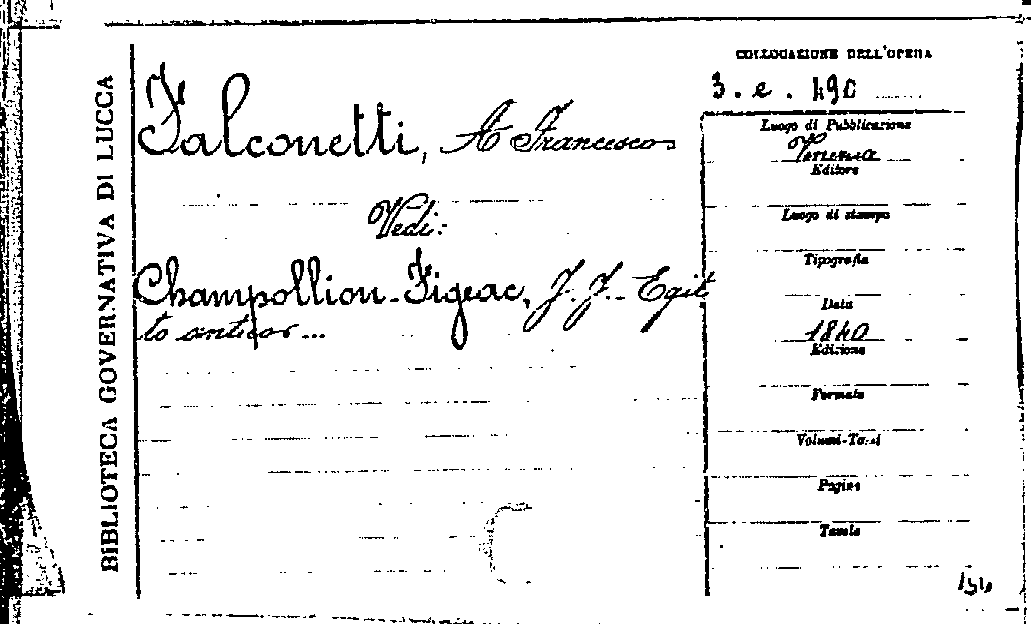 BIBLIOTECA GOVERNATIVA DI LUCCA
Falconetti, A Francesco
Vedi:
Champollion-Figeac, J. J. - Egit
to antico ...
COLLOCAZIONE DELL'OPERA
3. e. 490
Luogo di Pubblicazione
Editore
Luogo di stampa
Tipografia
Data
1840
Edizione
Formato
Volumi-Tomi
Pagine
Tavole